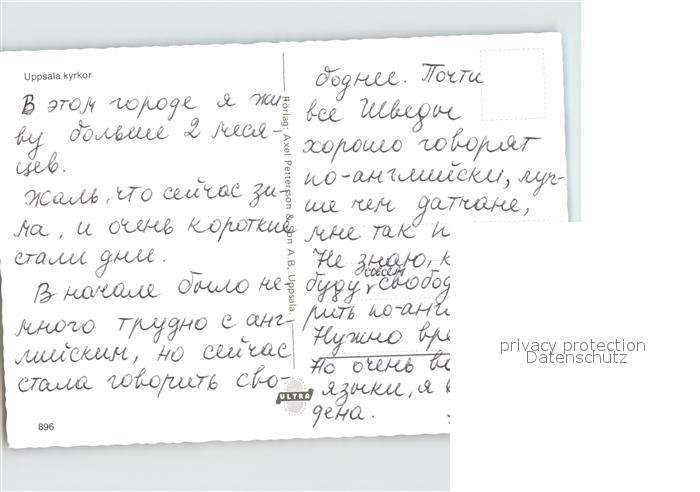 Uppsala kyrkor
В этом городе я жи-
ву больше 2 меся-
цев.
Жаль, что сейчас зи-
ма, и очень короткие
стали дни.
В начале было не-
много трудно с анг-
лийским, но сейчас
стала говорить сво-
896
Förlag: Axel Pettersson & Son A.B. Uppsala.
ULTRA
боднее. Почти
все Шведы
хорошо говорят
по-английски, луч-
ше чем датчане,
мне так
Не знаю,
совсем
буду свобод
рить по-анг
Нужно вре
Но очень
языки, я
дена.
privacy protection
Datenschutz